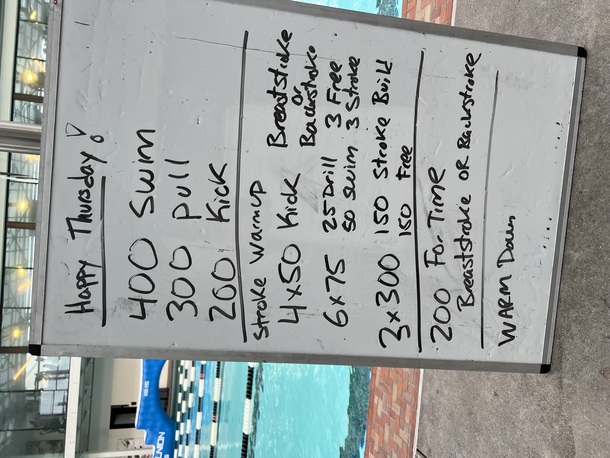 Happy Thursday!
400 Swim
300 pull
200 Kick
Stroke Warmup
4x50 Kick Breaststroke or Backstroke
6x75 25 Drill 3 Free
50 swim 3 Stroke
3x300 150 Stroke Build
150 Free
200 For Time
Breaststroke OR Backstroke
WARM Down
UNION